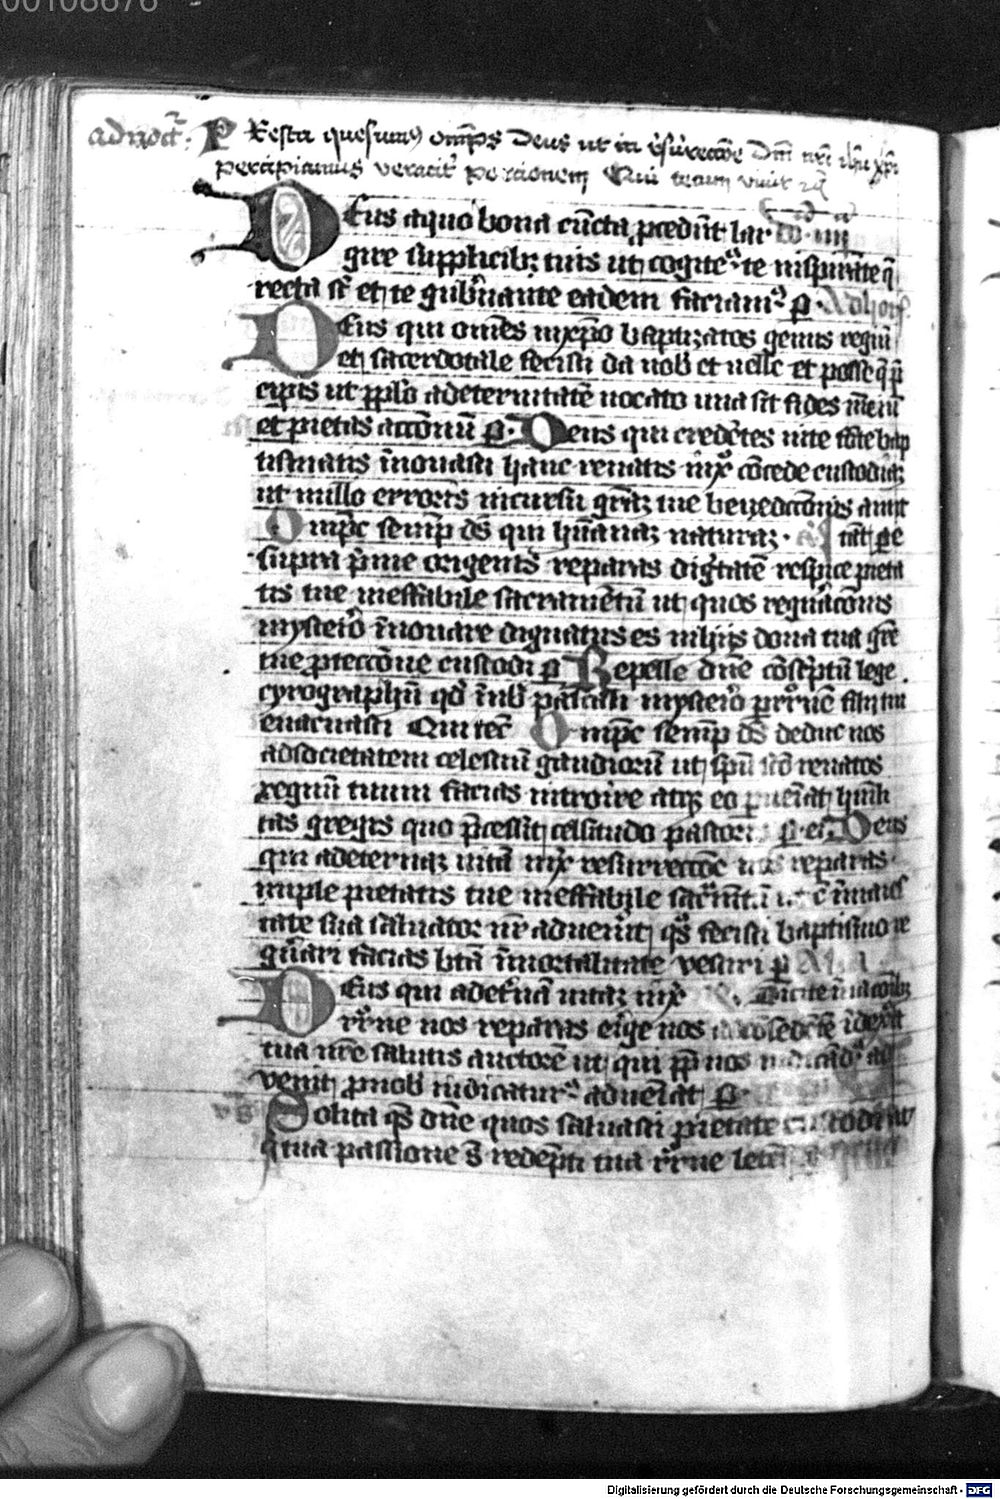 00108676
ad noct̄. P Resta quesumꝯ omp̄s Deus ut in r̄surrecc̄oe Dn̄i nr̄i ih̄u xp̄i
percipiamus veracit̄ porcionem Qui tecum viuit
Eus a quo bona cūcta ꝓcedūt lar
gire supplicibꝫ tuis ut cogitemꝰ te inspirāte q̄
recta sūt et te gub̄nante eadem faciamꝰ ꝑ. Ad hor̄
Eus qui om̄es in xp̄o baptizatos genus regiū
et sacerdotale fecisti da nob̄ et uelle et posse q̄ p̄
cipis ut pp̄lo ad eternitatē uocato una sit fides mēciū
et pietas accōnū ꝑ. Deus qui credētes in te fōte bap
tismatis īnouasti hanc renatis in xp̄o cōcede custodiā
ut nullo erroris incursu grām tue benedicc̄onis amit
Omp̄c semp̄ ds̄ qui hūanaꝫ naturaꝫ tāt ꝑ e
supra p̄me originis reparas dignitatē respice pieta
tis tue ineffabile sacramētū ut quos regn̄acōnis
mysterio īnouare dignatus es in hijs dona tua grē
tue ꝓteccōne custodi ꝑ Repelle dn̄e cōscptū lege
cyrographū qd̄ in nob̄ paschali mysterio ꝑ rr̄nē filij tui
euacuasti Qui tec̄ Omp̄c semp̄ ds̄ deduc nos
ad societatem celestiū gaudiorū ut spū sc̄o renatos
regnū tuum facias introire atqꝫ eo ꝑueniat humili
tas gregis quo p̄cessit celsitudo pastoris ꝑ eū. Deus
qui ad eternaꝫ uitā in xp̄i resurreccōe nos reparas
imple pietatis tue ineffabile sacrm̄tū ut cū ī maies
tate sua saluator nr̄ aduenerit qs̄ fecisti baptismo re
gn̄ari facias btā īmortalitate vestiri ꝑ
Eus qui ad et̄nā uitaꝫ in xp̄i
rr̄ne nos reparas erige nos ad cōsedētē ī dext̄a
tua nr̄e salutis auctorē ut qui ꝓp̄ nos iudicādꝰ ad
venit ꝓ nob̄ iudicaturꝰ adueniat ꝑ
Solita qs̄ dn̄e quos saluasti pietate custodi ut
q̄ tua passione s̄ redēpti tua rr̄ne letent̄
Digitalisierung gefördert durch die Deutsche Forschungsgemeinschaft - DFG